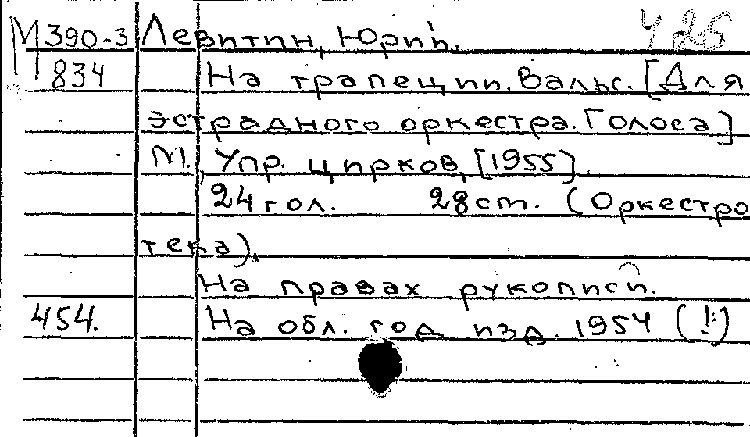 М 390-3 Левитин, Юрий. У 25
834 На трапеции. Вальс. [Для
эстрадного оркестра. Голоса]
М., Упр. цирков, [1955].
24 гол. 28 см. (Оркестро
тека).
На правах рукописи.
454. На обл. год изд. 1954 (!)